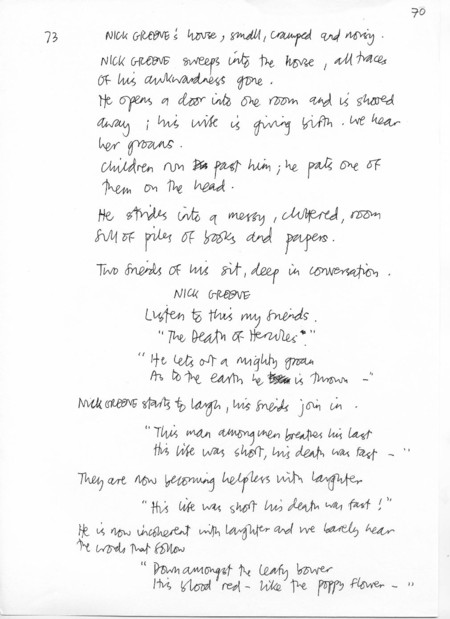 70
73 NICK GREEVE's house, small, cramped and noisy.
NICK GREEVE sweeps into the house, all traces
of his awkwardness gone.
He opens a door into one room and is shoved
away; his wife is giving birth. We hear
her groans.
Children run past him; he pats one of
them on the head.
He strides into a messy, cluttered, room
full of piles of books and papers.
Two friends of his sit, deep in conversation.
NICK GREEVE
Listen to this my friends.
"The Death of Hercules*."
"He lets out a mighty groan
As to the earth he is thrown -"
NICK GREEVE starts to laugh, his friends join in.
"This man among men breathes his last
His life was short, his death was fast - "
They are now becoming helpless with laughter
"His life was short his death was fast!"
He is now incoherent with laughter and we barely hear
the words that follow
"Down amongst the leafy bower
His blood red - like the poppy flower - "